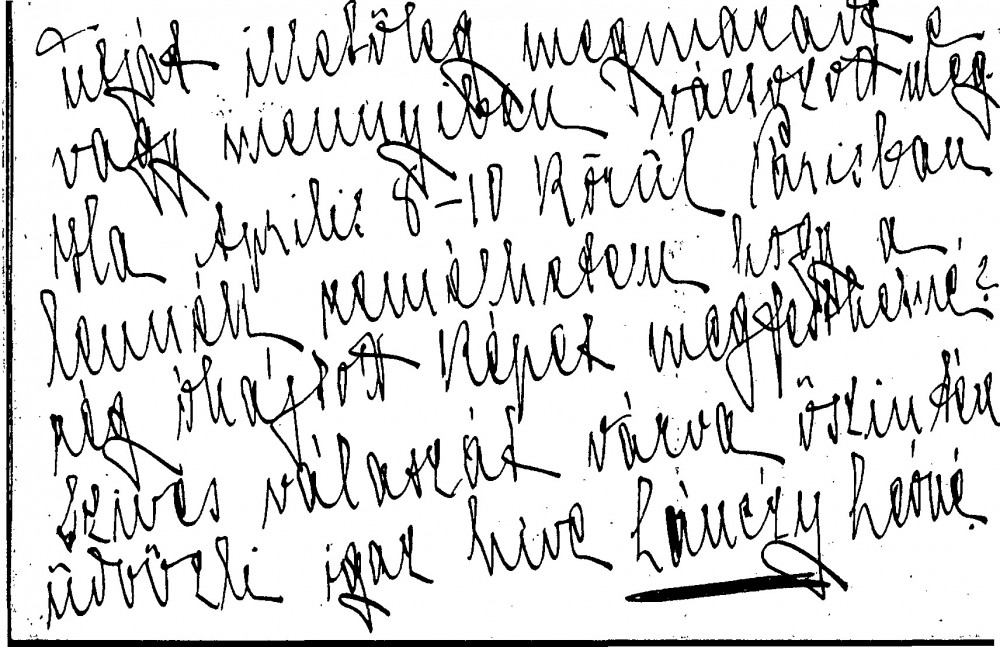 útját illetőleg megmaradt e
vagy mennyiben változott meg.
Ha Aprilis 8-10 körül Párisban
lennék remélhetem hogy a
rég óhajtott képet megfesthetné?
szives válaszát várva őszintén
üdvözli igaz hive Lánczy Leóné